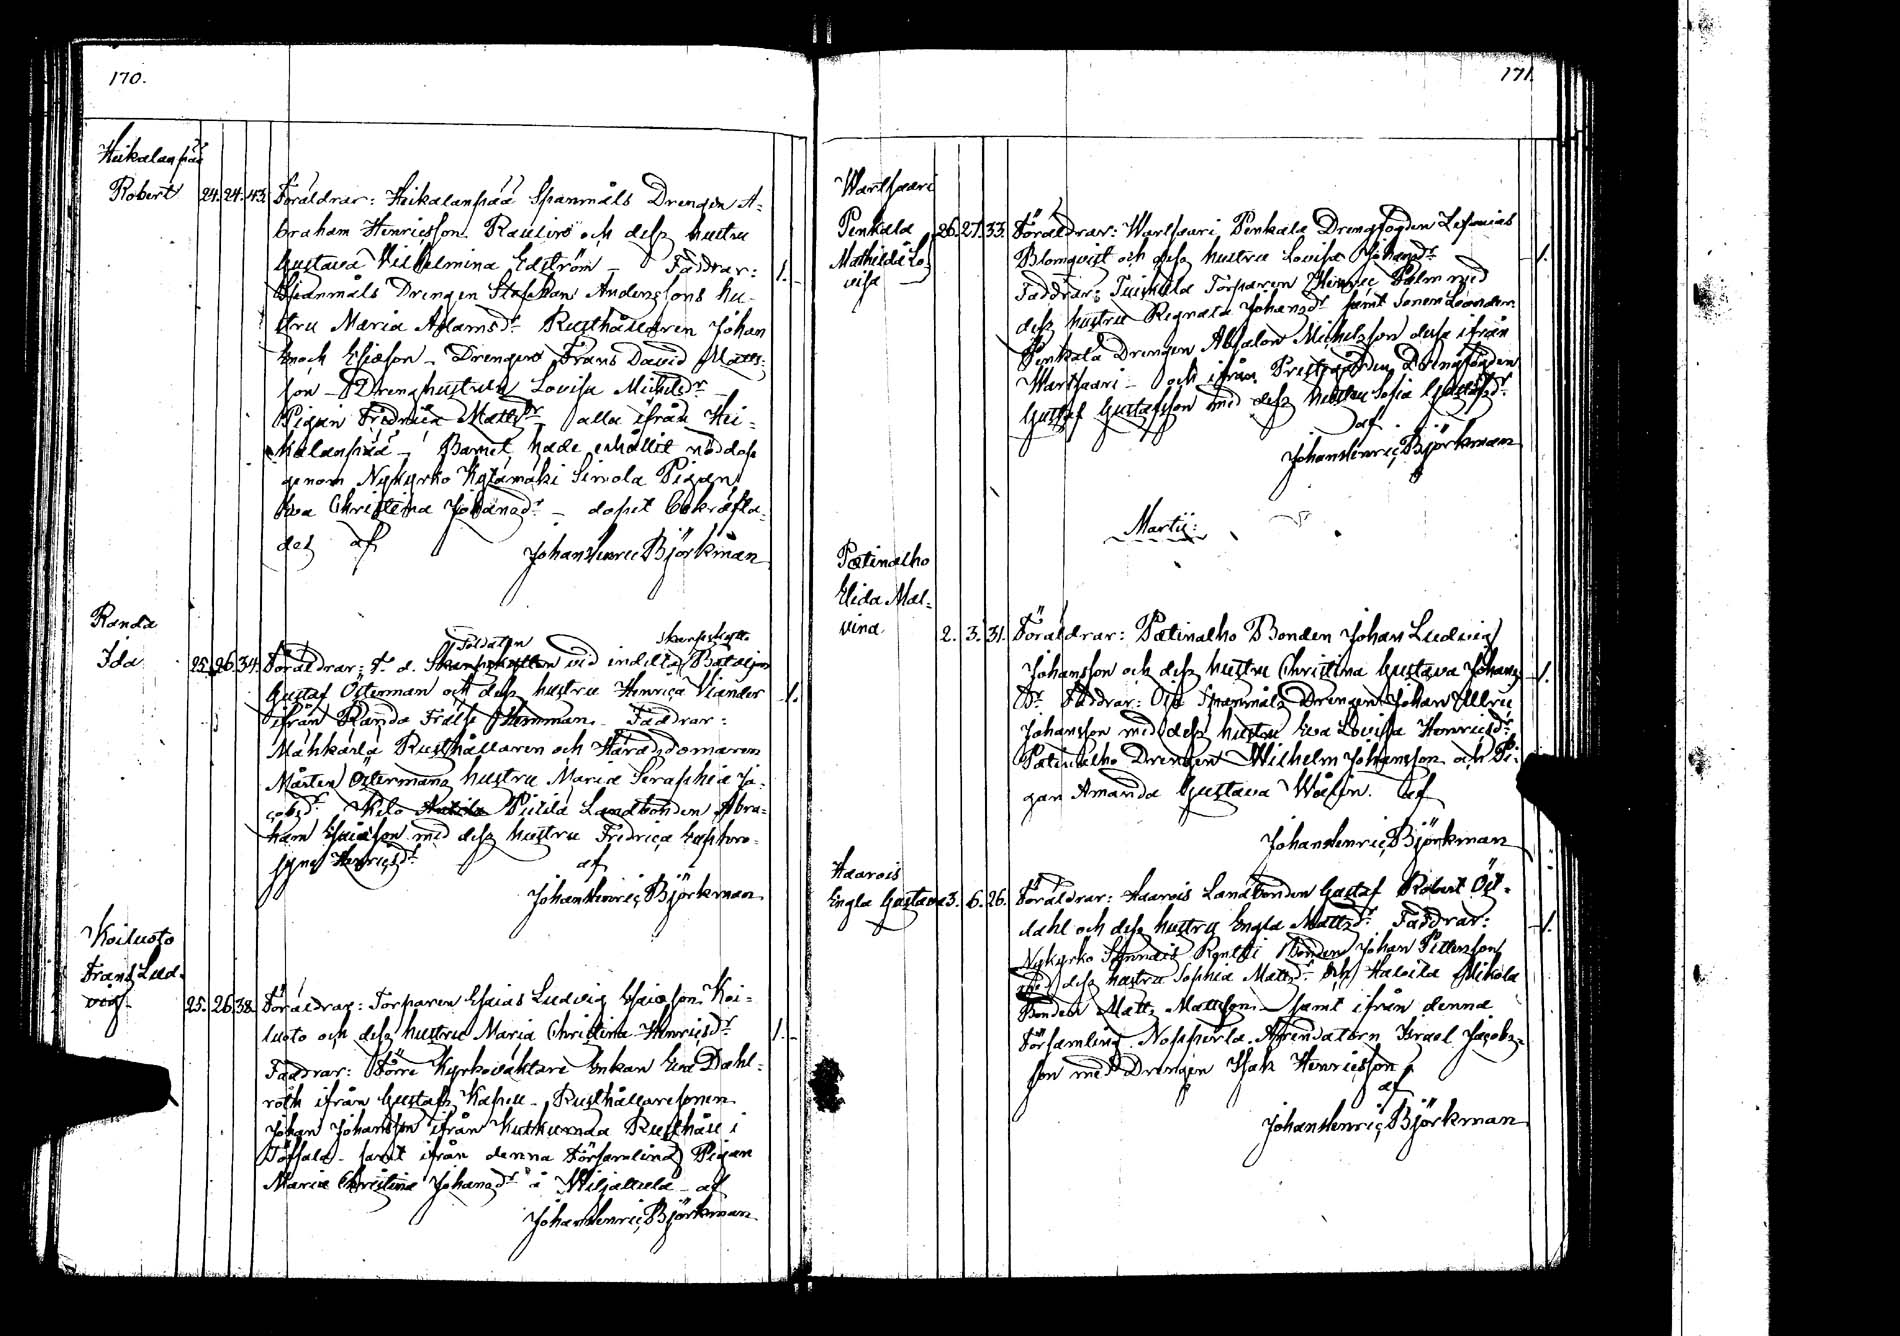 170.
Heikalanpää
Robert 24. 24. 43. Föräldrar: Heikalanpää Spanmåls Drengen A-
braham Henricsson Raulio och dess hustru
Gustava Vilhelmina Edström – Faddrar: 1.
Spanmåls Drengen Staffan Anderssons hu-
stru Maria Adamsdr Rusthållaren Johan
Enoch Esiasson – Drengen Frans David Matts-
son – Drenghustrun Lovisa Michelsdr –
Pigan Fredrica Mattsdr – alla ifrån Hei-
kalanpää – Barnet hade erhållit nöddop
genom Nykyrko Kylämäki Simola Pigan
Eva Christina Johansdr – dopet bekräfta-
des af
Johan Henric Björkman
Randa
Ida 25. 26. 34. Föräldrar: F. d. Soldaten vid indelta Bataljon
Gustaf Österman och dess hustru Henrica Viander 1.
ifrån Randa Frälse Hemman – Faddrar:
Mahkarla Rusthållaren och Häradsdomaren
Mårten Östermans hustru Maria Seraphia Ja-
cobsdr Kelo Pietilä Landbonden Abra-
ham Esaiasson med dess hustru Fredrica Euphro-
syne Henricsdr af
Johan Henric Björkman
Koiluoto
Frans Lud-
vig 25. 26. 38. Föräldrar: Torparen Esaias Ludvig Esaiasson Koi-
luoto och dess hustru Maria Christina Henricsdr 1.
Faddrar: Förre Kyrkoväktare Enkan Eva Dahl-
roth ifrån Gustafs Kapell – Rusthållaresonen
Johan Johansson ifrån Kutkurnaa Rusthåll i
Töfsala – samt ifrån denna Församling Pigan
Maria Christina Johansdr å Wiljallula – af
Johan Henric Björkman
171.
Wartsaari
Penkala 26. 27. 33. Föräldrar: Wartsaari Penkala Drengfogden Zefanias
Mathilda Lo-
visa
Blomqvist och dess hustru Lovisa Johansdr 1.
Faddrar: Tuiskula Torparen Henric Palm med
dess hustru Regnata Johansdr samt Sonen Leander
Penkala Drengen Absalon Michelsson dessa ifrån
Wartsaari – och ifrån Prestgården Drengfogden
Gustaf Gustafsson med dess hustru Sofia Gustafsdr
af
Johan Henric Björkman
Martii:
Pätinalho
Elida Mal-
vina 2. 3. 31. Föräldrar: Pätinalho Bonden Johan Ludvig
Johansson och dess hustru Christina Gustava Johans- 1.
Dr Faddrar: Oja Spanmåls Drengen Johan Ulric
Johansson med dess hustru Eva Lovisa Henricsdr
Pätinalho Drengen Wilhelm Johansson och Pi-
gan Amanda Gustava Wahlin. af
Johan Henric Björkman
Haarois
Engla Gustava 3. 6. 26. Föräldrar: Haarois Landbonden Gustaf Robert Öst-
dahl och dess hustru Engla Mattsdr Faddrar: 1.
Nykyrko Sunnais Rentti Bonden Johan Pettersson
med dess hustru Sophia Mattsdr och Haloila Mikola
Bonden Matts Mattsson – samt ifrån denna
Församling Nopperla Arrendatorn Israel Jacobs-
son med Drengen Isak Henricsson
af
Johan Henric Björkman